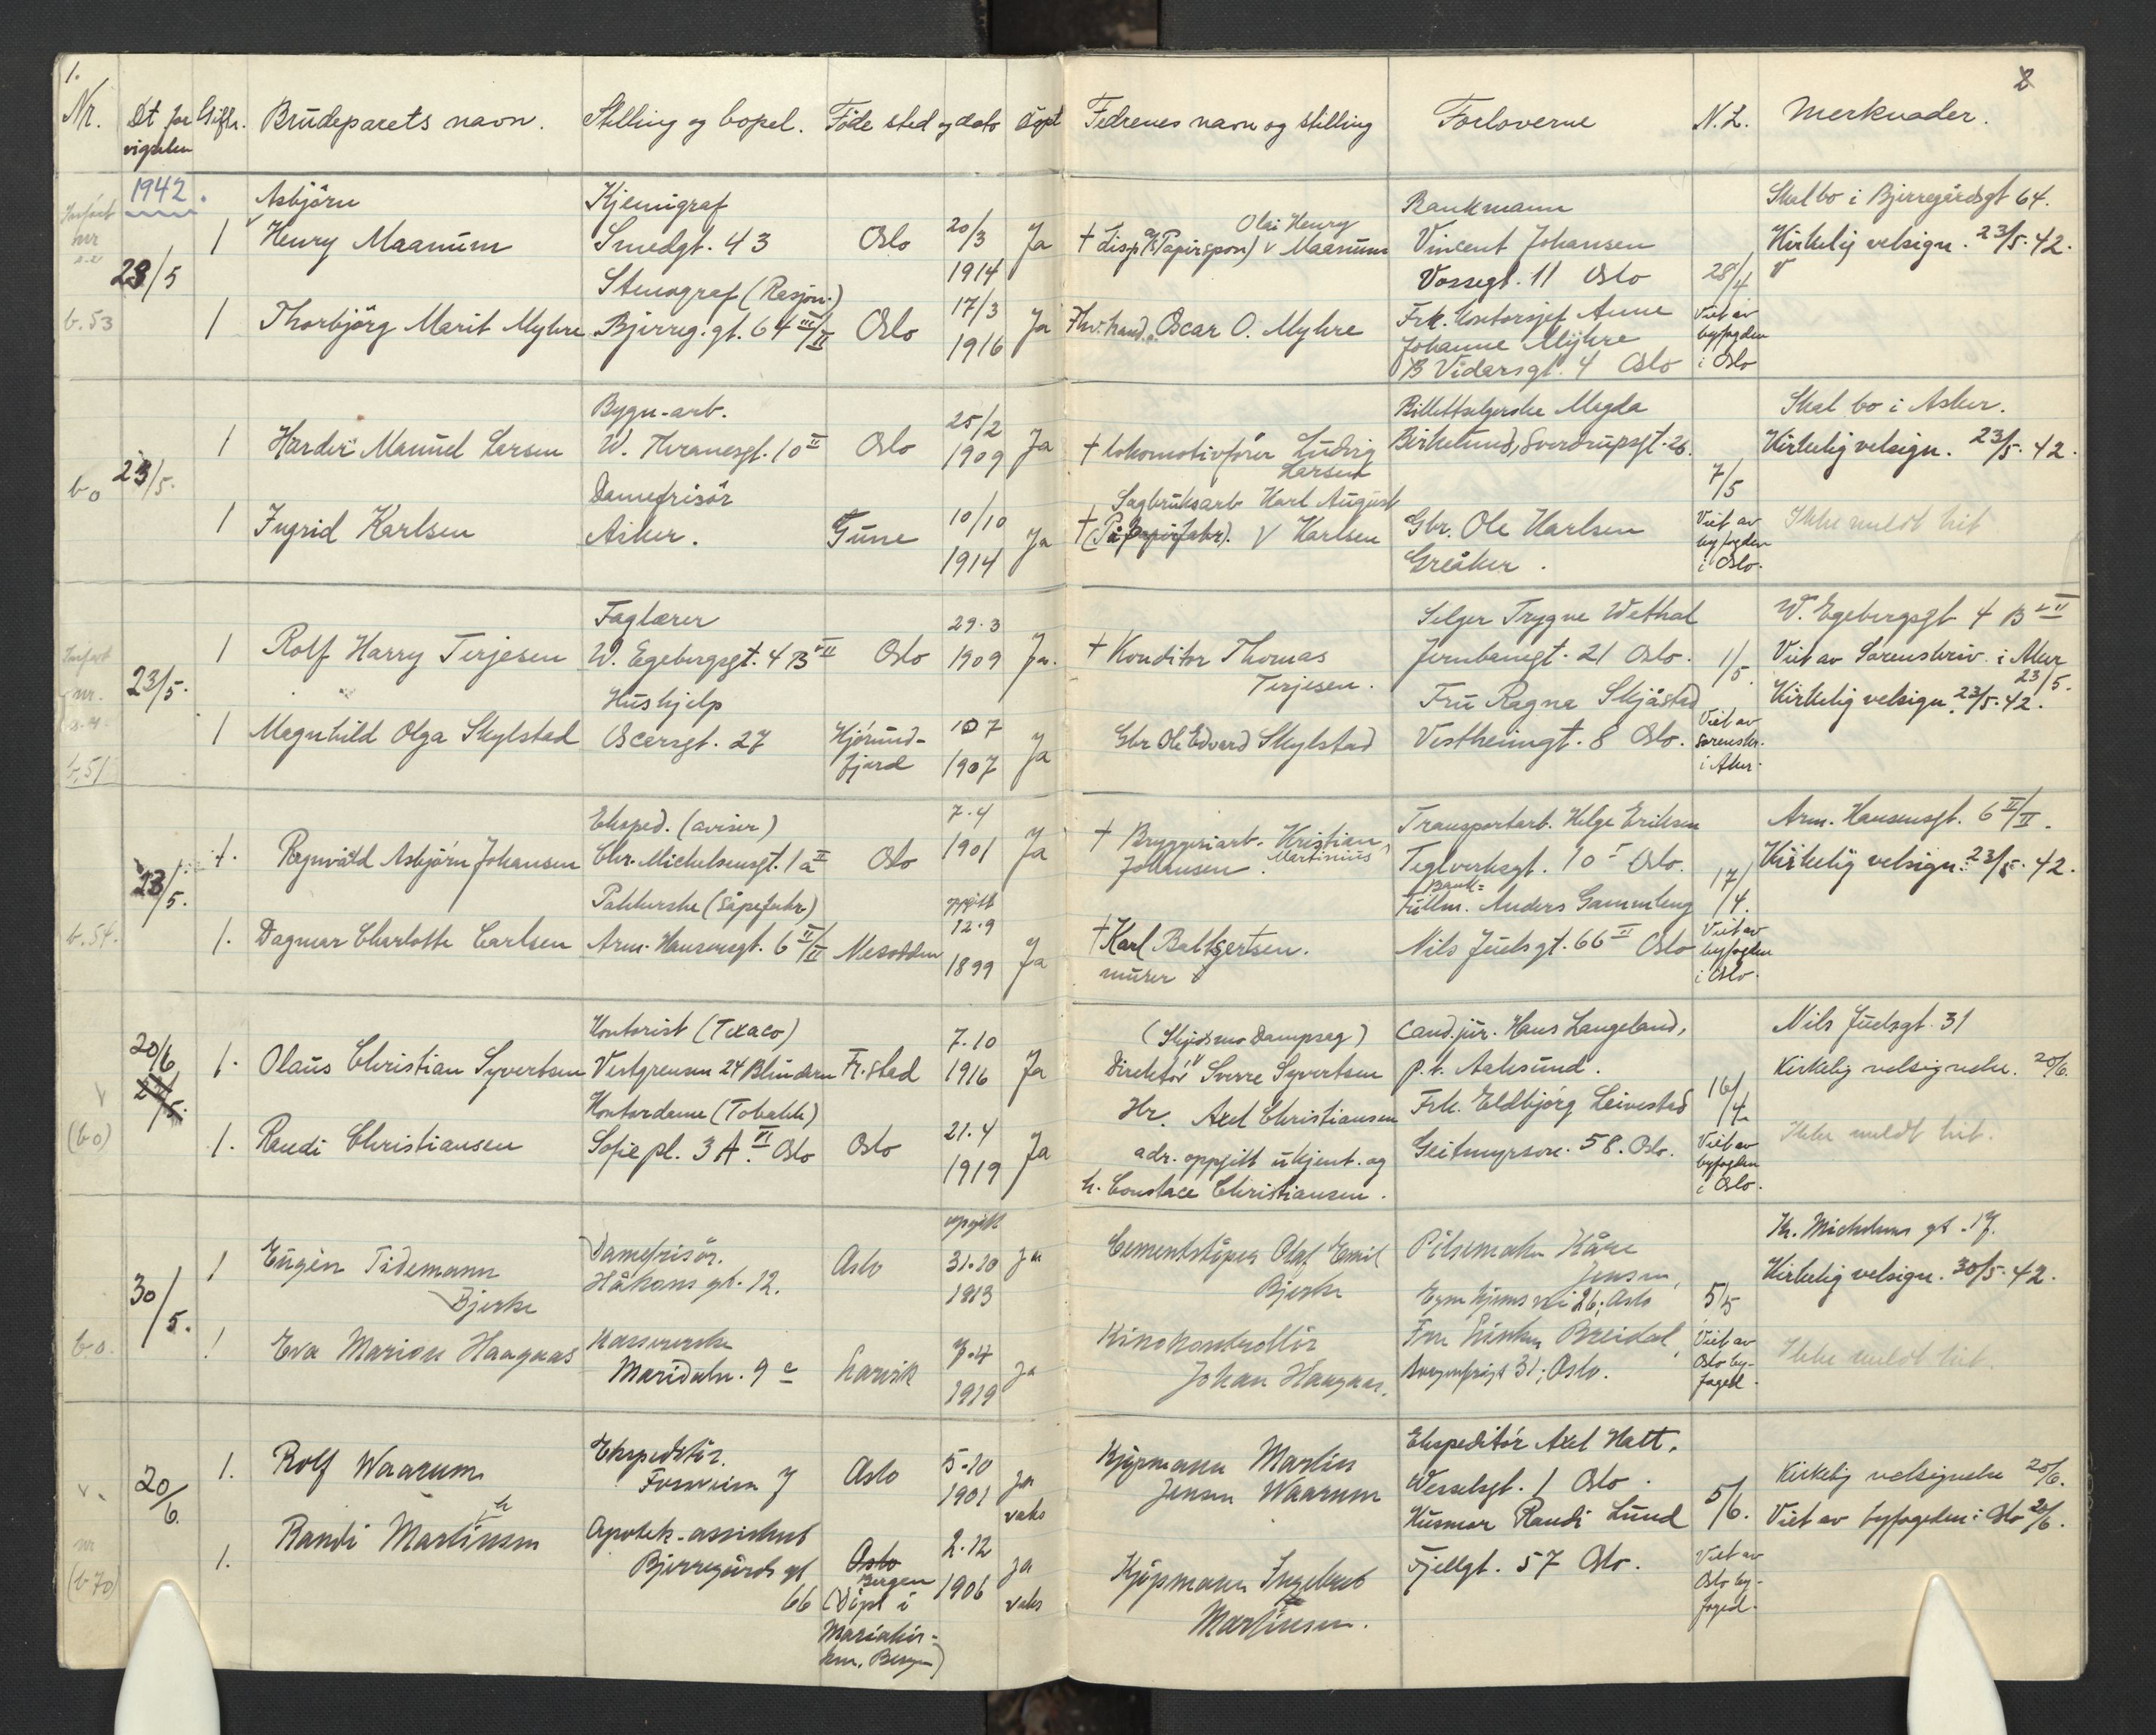 1.
2
Nr. Dt for vigselen Gifte. Brudeparets navn. Stilling og bopel. Föde sted og dato döpt Fedrenes navn og stilling Forloverne N.L. Merknader.
1942.
Asbjörn Kjemigraf Olai Henry Bankmann Skal bo i Bjerregårdsgt 64.
1 Henry Maanum Smedgt. 43 Oslo 20/3 Ja † disp. Maanum Vincent Johansen Kirkelig velsign. 23/5. 42.
23/5 1914 Vossegt. 11 Oslo 28/4
Stenograf (Rasjon.)
b.53 1 Thorbjörg Marit Myhre Bjerreg. gt. 64 III/II Oslo 17/3 Ja Oscar O. Myhre Frk. Kontorsjef Anne Viet av
1916 Johanne Myhre byfogden
B Vidarsgt. 4 Oslo i Oslo
Bygn-arb. 25/2 Billettselgerske Magda Skal bo i Asker.
1 Manuel Larsen W. Thranesgt. 10 II Oslo 1909 Ja † lokomotivfører Ludvig Birkelund, Sverdrupsgt. 26. Kirkelig velsign. 23/5. 42.
Larsen
bo 23/5. Damefrisör Sagbruksarb Karl August 7/5
1 Ingrid Karlsen Asker. Tune 10/10 Ja † Karlsen Gbr. Ole Karlsen Viet av Ikke meldt hit
1914 Greåker. byfogden
i Oslo.
Faglærer 29.3 Selger Trygve Wethal W. Egebergsgt 4 B II
1 Rolf Harry Terjesen W. Egebergsgt. 4 B II Oslo 1909 Ja. † Konditor Thomas Jernbanegt. 21 Oslo. 1/5 Viet av Sorenskriv. i Aker
23/5. Hushjelp Terjesen. Fru Ragna Skjåstad 23/5.
Kirkelig velsign. 23/5. 42.
1 Magnhild Olga Skylstad Oscarsgt. 27 Hjörund- 10 7 Ja Gbr Ole Edvard Skylstad Vestheimgt. 8 Oslo. Viet av
b.51 fjord 1907 sorenskr.
i Aker.
Eksped. (aviser) 7.4 Transportarb. Helge Eriksen Arm. Hansensgt. 6 II/II.
1. Ragnvald Asbjörn Johansen Chr. Michelsensgt. 1a II Oslo 1901 Ja † Bryggeriarb. Kristian Martinius Teglverksgt. 10 I Oslo. Kirkelig velsign. 23/5. 42.
23/5. Johansen. 17/4.
Pakkerske (såpefabr) oppgitt Bank= Fullm. Anders Gammleng
b.54. 1. Dagmar Charlotte Carlsen Arm. Hansensgt. 6 II/II Nesodden 12.9 Ja † Karl Baltzertsen. Nils Juelsgt. 66 II Oslo Viet av
1899 murer byfogden
i Oslo.
Kontorist (Texaco) 7.10 (Skjedsmo Dampsag) Cand. jur. Hans Langeland, Nils Juelsgt. 31
20/6 1. Olaus Christian Syvertsen Vestgrensen 24 Blindern Fr.stad 1916 Ja Direktör Sverre Syvertsen p.t. Aalesund. Kirkelig velsignelse. 20/6.
Kontordame (Tobakk) Hr. Axel Christiansen Frk. Eldbjörg Leivestad 16/4
(bo) 1. Randi Christiansen Sofie pl. 3 A VI Oslo Oslo 21.4 Ja adr. oppgitt ukjent. og Geitmyrsvn. 58. Oslo. Viet av Ikke meldt hit.
1919 h. Constace Christiansen. byfogden
i Oslo.
oppgitt Kr. Michelsens gt. 17.
1 Eugèn Tidemann Damefrisör. Oslo 31.10 Ja Cementstöper Olaf Emil Kåre Kirkelig velsign. 30/5. 42.
Bjerke Håkons gt. 12. 1913 Bjerke Jensen,
30/5. vei 26, Oslo 5/5
b.o. 1 Eva Marion Haagaas Kasererske Larvik 7.4 Ja Kinokontrollör Fru Breidal, Viet av Ikke meldt hit.
Maridalsv. 9 c 1919 Johan Haagaas. 31, Oslo. Oslo by-
foged.
Ekspeditör. 5.10 Kjöpmann Martin Ekspeditör Axel Hatt.
1. Rolf Waarum 7 Oslo 1901 ja Jensen Waarum Wesselsgt. 1 Oslo. Kirkelig velsignelse 20/6.
20/6. vaks Husmor Randi Lund 5/6. Viet av byfogeden i Oslo 20/6.
Apotek-assistent 2.12
1. Randi Martinsen Bjerregårds gt Oslo Ja Kjöpmann Ingebret Fjellgt. 57 Oslo. Viet av
(b 70) 66 Bergen 1906 vaks Martinsen. Oslo by-
(döpt i foged.
Mariakir-
ken, Bergen)